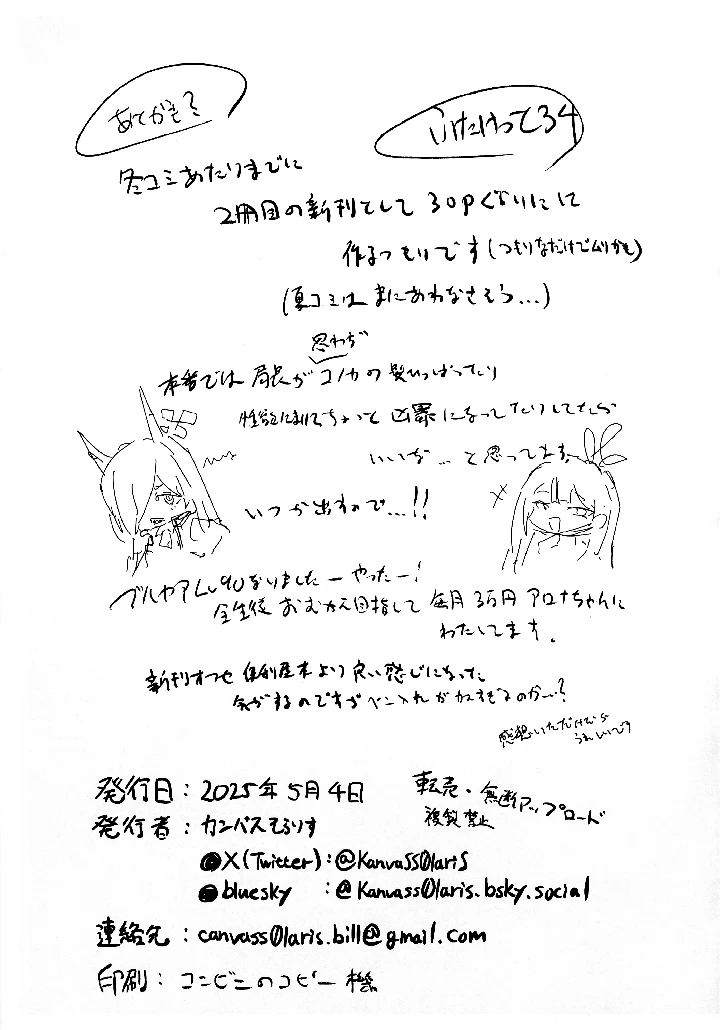 あとがき?
冬コミあたりまでに
2冊目の新刊として 30pぐらいに
作るつもりです(つもりなだけでムリかも)
(夏コミは まにあわなさそう...)
思わず
本書では 局長が コノカの髪ひっぱったり
ちょっと 凶暴になってたりしてたら
いいな... と思ってます
いつか出すので...!!
ブルアカLv90なりました ー やったー!
全生徒 おむかえ目指して 毎月 3万円 アロナちゃんに
わたしてます。
新刊 より良い感じになった
気がするのですが ペン入れが
感想いただけたら
うれしいです
発行日:2025年5月4日
転売・無断アップロード
複製禁止
発行者:カンバスそらりす
●X(Twitter):@KanvassOlaris
●bluesky :@KanvassOlaris.bsky.social
連絡先:canvassOlaris.bill@gmail.com
印刷:コンビニのコピー機